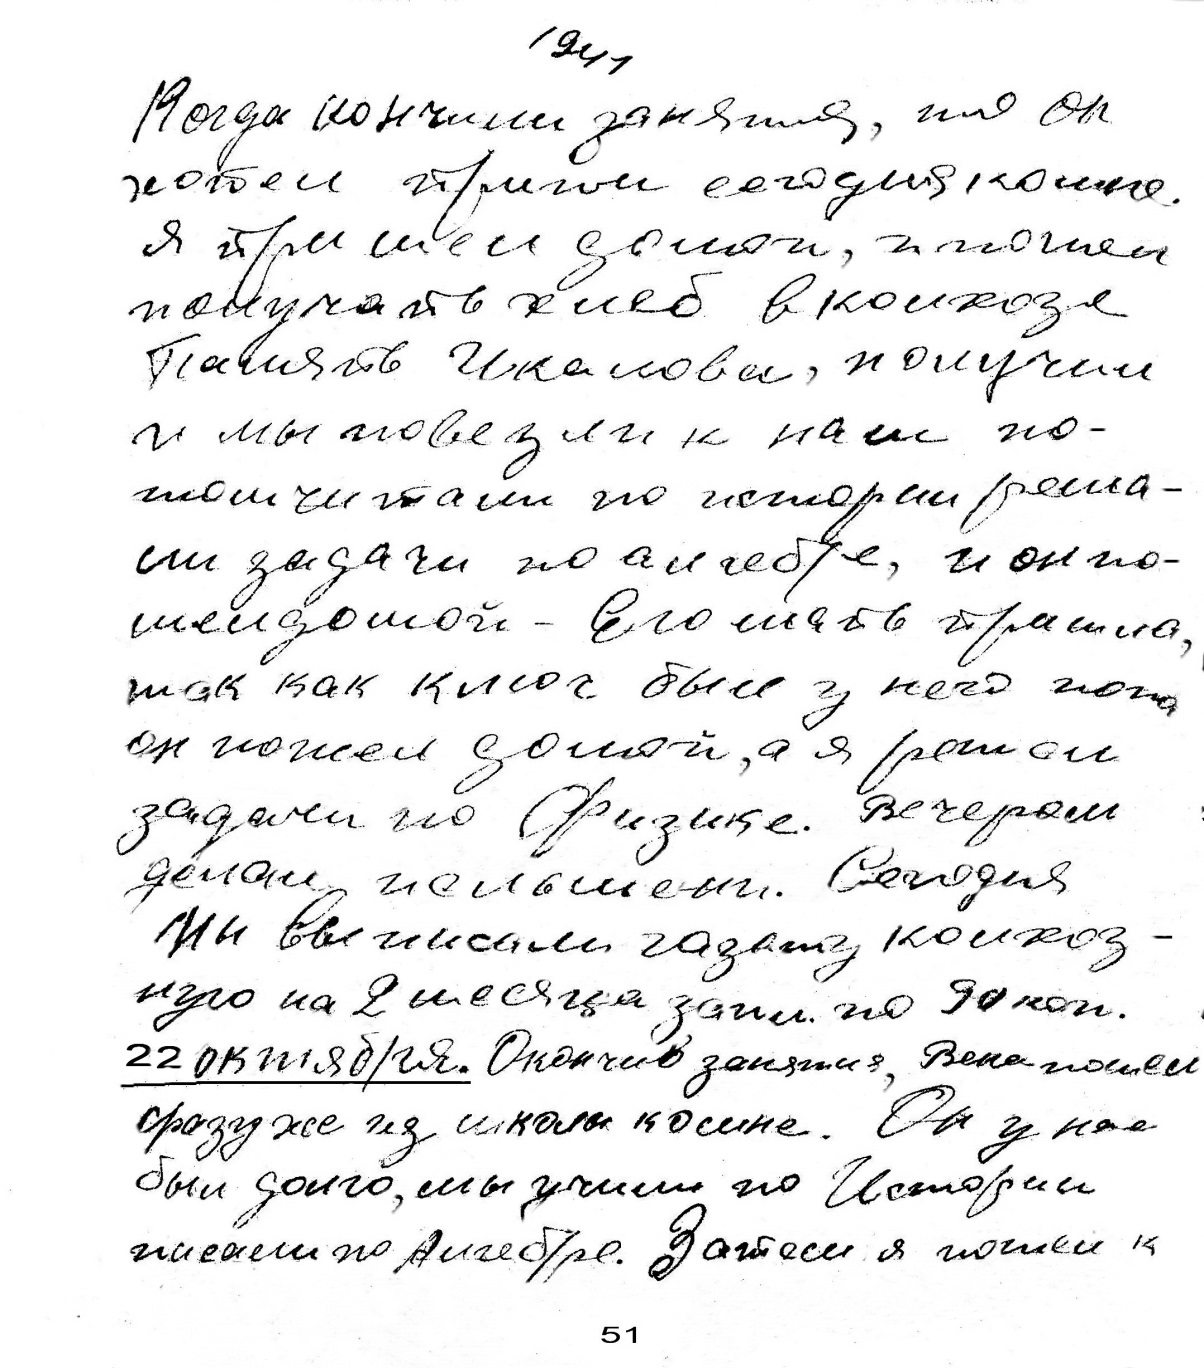 1941
Когда кончили занятия, то он
хотел притти сегодня ко мне.
я пришел домой, и пошел
получать хлеб в колхозе
Память Чкалова, получил
и мы повезли к нам по-
том читали по истории реша-
ли задачи по алгебре, и он по-
шел домой - Его мать пришла,
так как ключ был у него
он пошел домой, а я решал
задачи по Физике. Вечером
делали пельмени. Сегодня
Мы выписали газету колхоз-
ную на 2 месяца по 90 коп.
22 октября. Окончив занятия, Вена пошел
сразу же из школы ко мне. Он у нас
был долго, мы учили по Истории
писали по Алгебре. Затем я пошел к
51